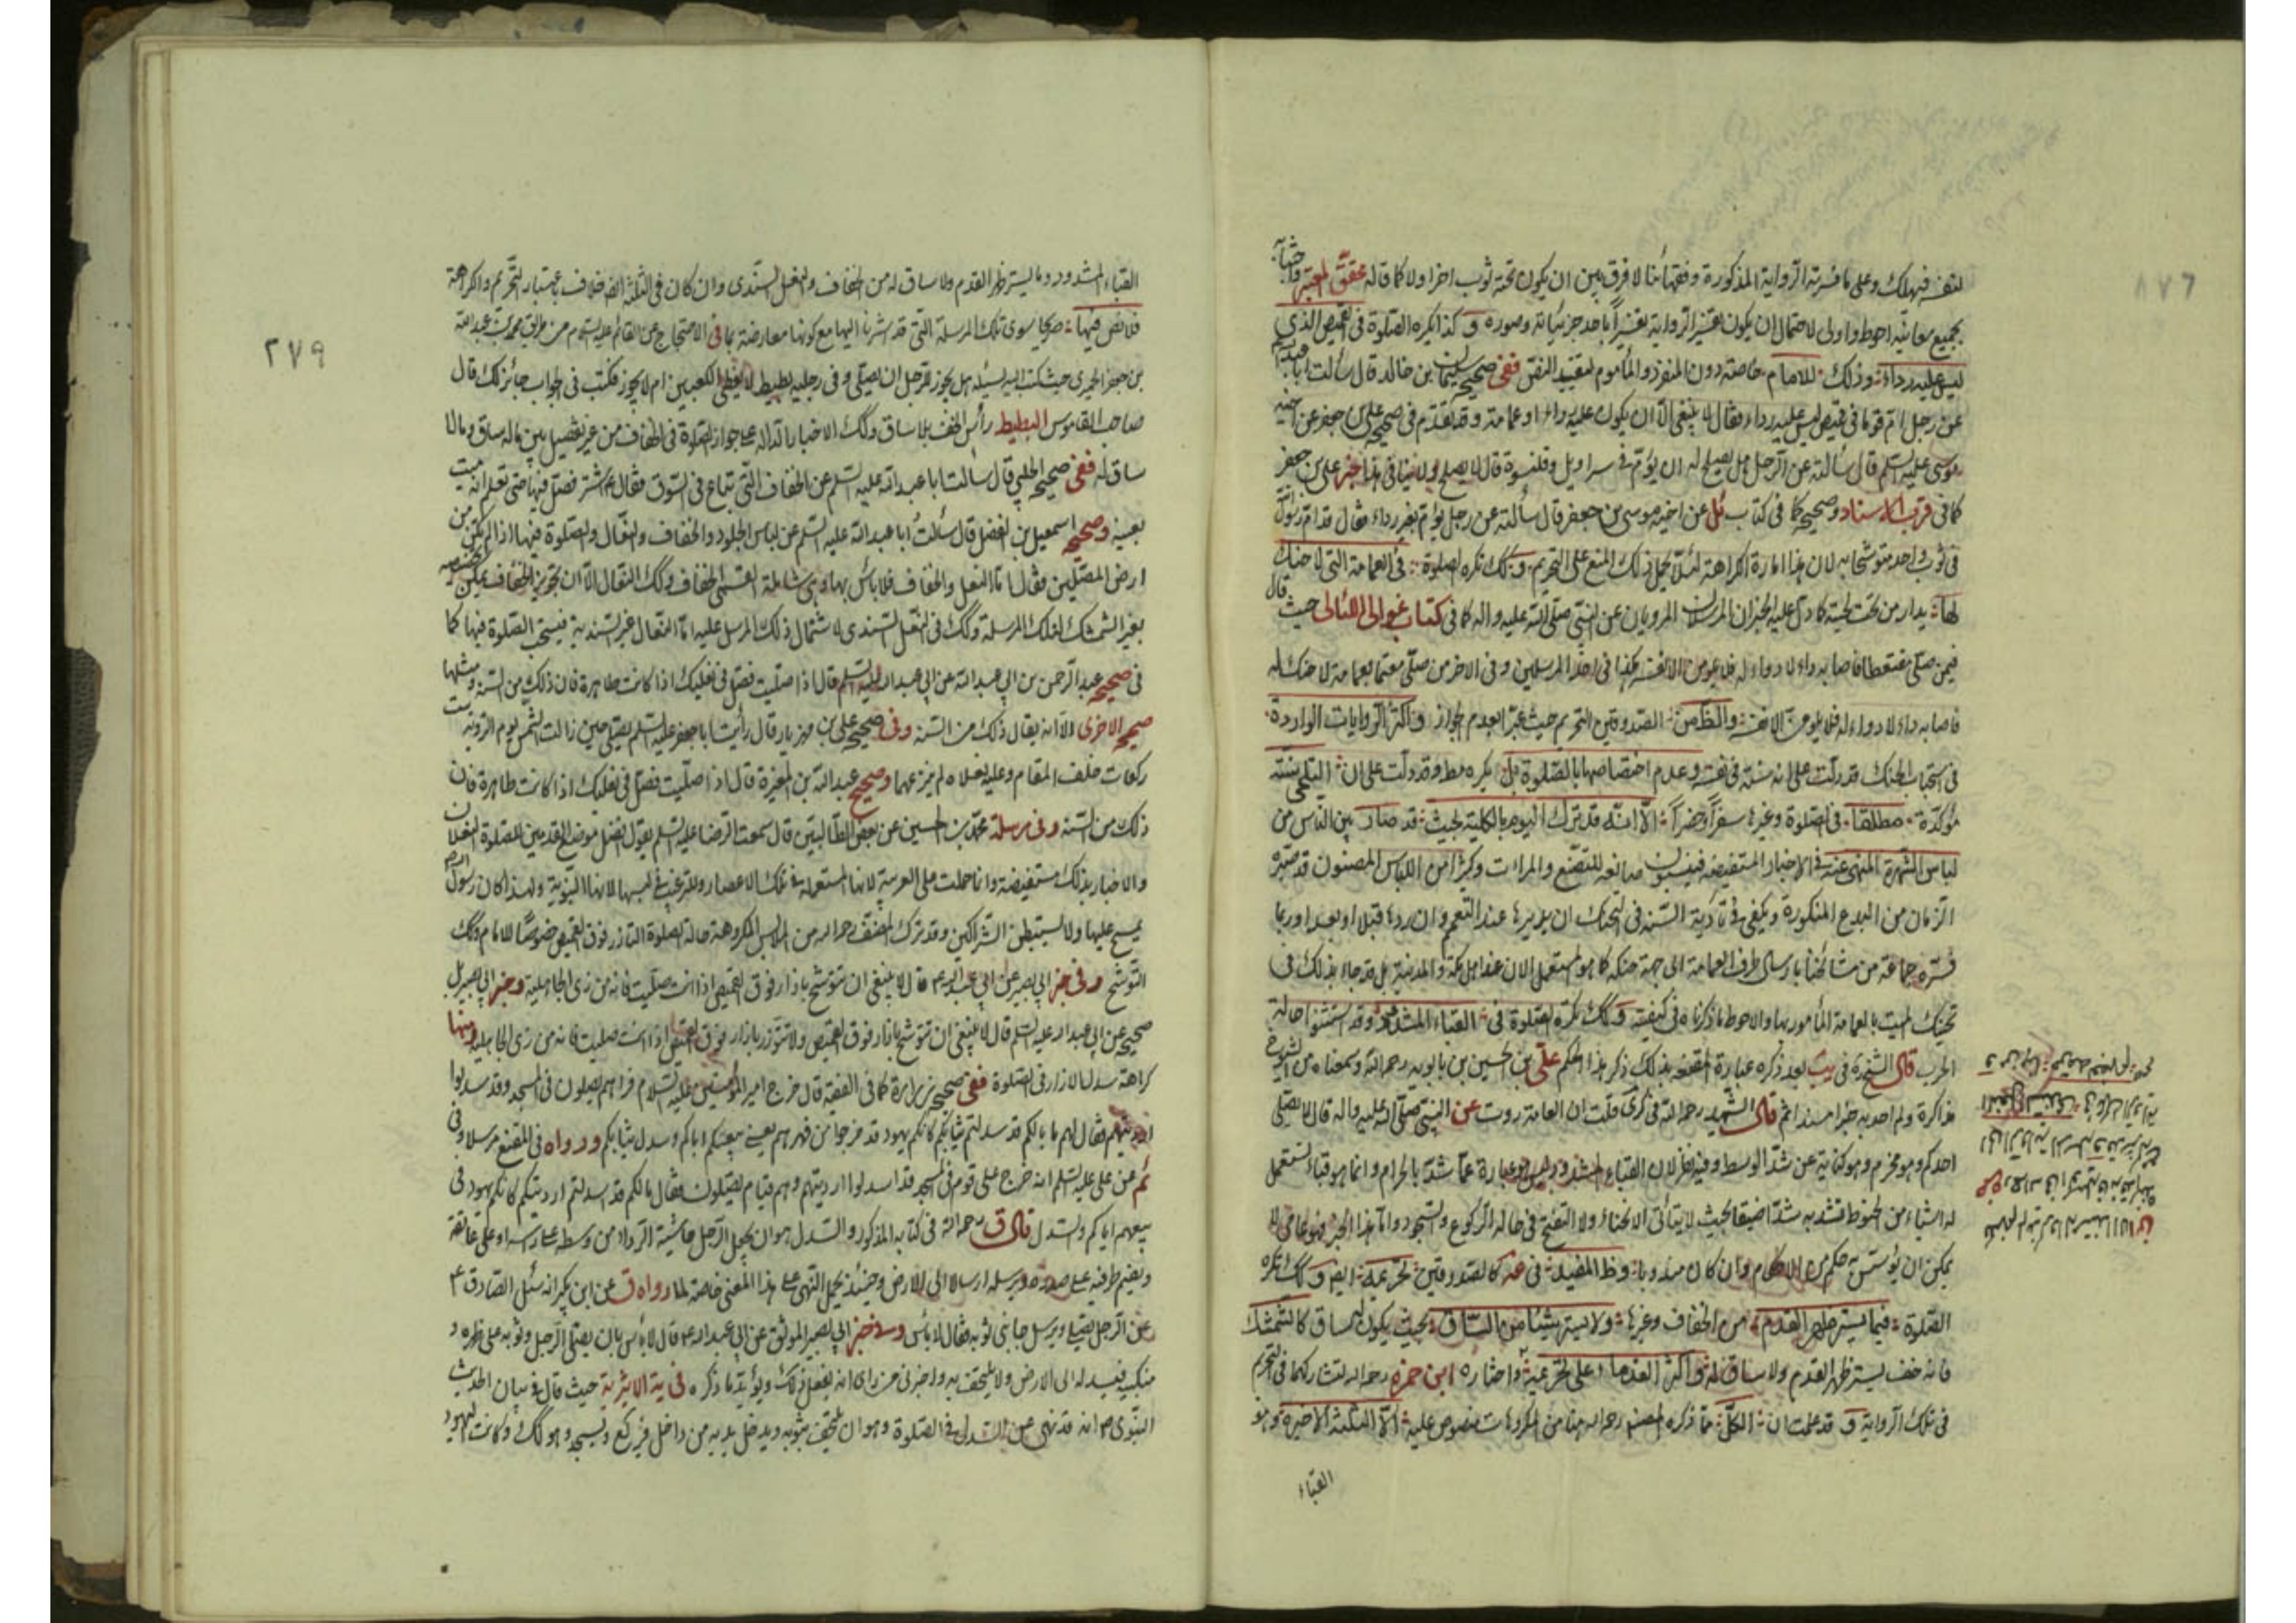 لنفسه فيهلك وعلى ما فسرته الرواية المذكورة وفقهائنا لا فرق بين ان يكون تحته ثوب اخر اولا كما قاله محقق المعتبر واجتنابه
بجميع معانيه احوط واولى لاحتمال ان يكون تفسير الرواية تفسيراً باحد جزئياته وصوره و كذا يكره الصلوة في القميص الذي
ليس عليه رداء وذلك للامام خاصة دون المنفرد والمأموم لتقييد النص ففي صحيح سليمان بن خالد قال سألت ابا عبدالله
عن رجل ام قوما في قميص ليس عليه رداء فقال لا ينبغي الا ان يكون عليه رداء او عمامة وقد تقدم في صحيح علي بن جعفر عن اخيه
موسى عليه السلم قال سألته عن الرجل هل يصلح له ان يؤم في سراويل وقلنسوة قال لا يصلح ولا ينافي هذا خبر علي بن جعفر
كما في قرب الاسناد وصحيحه كما في كتاب ئل عن اخيه موسى بن جعفر قال سألته عن رجل يؤم بغير رداء فقال قد ام رسول الله
في ثوب واحد متوشحا به لان هذا امارة الكراهة لئلا يحمل ذلك المنع على التحريم وكك تكره الصلوة في العمامة التي لا حنك
لها يدار من تحت لحيته كما دل عليه الخبران المرسلان المرويان عن النبي صلى الله عليه واله كما في كتاب غوالي اللئالي حيث قال
فيمن صلى مقتعطا فاصابه داء لا دواء له فلا يلومن الا نفسه هكذا في احد المرسلين وفي الاخر من صلى معتما بعمامة لا حنك له
فاصابه داء لا دواء له فلا يلومن الا نفسه والظ من الصدوقين التحريم حيث عبرا بعدم الجواز واكثر الروايات الواردة
في استحباب الحنك قد دلت على انه سنة في نفسه وعدم اختصاصها بالصلوة بل يكره مط وقد دلت على ان التلحي سنة
مؤكدة مطلقا في الصلوة وغيرها سفراً وحضراً الا انه قد ترك اليوم بالكلية بحيث قد صار بين الناس من
لباس الشهرة المنهي عنه في الاخبار المستفيضة
الزمان من البدع المنكورة ويكفي في تأدية السنة في التحنك ان يديرها عند التعمم وان ردها قبلا او بعدا وربما
فسره جماعة من مشائخنا بارسال طرف العمامة الى جهة حنكه كما هو المستعمل الان عند اهل مكة والمدينة بل قد جاء بذلك في
تحنيك الميت بالعمامة المأمور بها والاحوط ما ذكرناه في كيفيته وكك تكره الصلوة في القباء المشدود وقد استثنوا حالة
الحرب قال الشيخ ره في يب بعد ذكره عبارة المقنعة بذلك ذكر هذا الحكم علي بن الحسين بن بابويه رحمه الله وسمعناه من الشيوخ
مذاكرة ولم اجد به خبرا مسندا ثم قال الشهيد رحمه الله في كرى قلت ان العامة روت عن النبي صلى الله عليه واله قال لا يصلي
احدكم وهو محزم وهو كناية عن شد الوسط وفيه نظر لان القباء المشدود ليس عبارة عما شد بالحزام وانما هو قباء يستعمل
له اشياء من الخيوط فتشد به شدا ضيقا بحيث لا يتأتى الانحناء ولا التفتح في حالة الركوع والسجود واما هذا الخبر فهو عامي لا
يمكن ان يؤسس به حكم من الاحكام وان كان مندوبا وظ المفيد في عه كالصدوقين تحريمه ايض وكك تكره
الصلوة فيما يستر ظهر القدم من الخفاف وغيرها ولا يستر شيئا من الساق بحيث يكون له ساق كالشمشك
فانه خف يستر ظهر القدم ولا ساق له واكثر القدماء على تحريمه واختاره ابن حمزه رحمه الله لتشاركهما في التحريم
في تلك الرواية و قد علمت ان الكل مما ذكره المصنف رحمه الله هنا من المكروهات منصوص عليه الا الثلثة الاخيرة وهو
القباء
٢٧٩
القباء المشدود وما يستر ظهر القدم ولا ساق له من الخفاف والنعل السندي وان كان في الثلثة ايض خلاف باعتبار التحريم والكراهة
فلا نص فيها صريحا سوى تلك المرسلة التي قد اشرنا اليها مع كونها معارضة بما في الاحتجاج عن القائم عليه السلام من طريق محمد بن عبدالله
بن جعفر الحميري حيث كتب اليه يسئله هل يجوز للرجل ان يصلي وفي رجليه بطيط لا يغطي الكعبين ام لا يجوز فكتب في الجواب جائز لك قال
صاحب القاموس البطيط رأس الخف بلا ساق وكك الاخبار الدالة على جواز الصلوة في الخفاف من غير تفصيل بين ماله ساق وما لا
ساق له ففي صحيح الحلبي قال سالت ابا عبدالله عليه السلم عن الخفاف التي تباع في السوق فقال اشتر فصل فيها حتى تعلم انه ميت
بعينه وصحيح اسمعيل بن الفضل قال سئلت ابا عبدالله عليه السلم عن لباس الجلود والخفاف والنعال والصلوة فيها اذا لم تكن من
ارض المصلين فقال اما النعل والخفاف فلا باس بها وهي شاملة لقسمي الخفاف وكك النعال الا ان تجويز الخفاف يمكن تخصيصه
بغير الشمشك لتلك المرسلة وكك في النعل السندي لاشتمال ذلك المرسل عليه اما النعال غير السندية فيستحب الصلوة فيها كما
في صحيح عبدالرحمن بن ابي عبدالله عن ابي عبدالله عليه السلم قال اذا صليت فصل في نعليك اذا كانت طاهرة فان ذلك من السنة ومثلها
صحيحه الاخرى الا انه يقال ذلك من السنة وفي صحيح علي بن مهزيار قال رأيت ابا جعفر عليه السلم يصلي حين زالت الشمس يوم التروية ست
ركعات خلف المقام وعليه نعلاه لم ينزعهما وصحيح عبدالله بن المغيرة قال اذا صليت فصل في نعليك اذا كانت طاهرة فان
ذلك من السنة وفي مرسلة محمد بن الحسين عن بعض الطالبيين قال سمعت الرضا عليه السلم يقول افضل موضع القدمين للصلوة النعلان
والاخبار بذلك مستفيضة وانما حملت على العربية لانها المستعملة في تلك الاعصار وللترغيب في لبسها لانها النبوية ولهذا كان رسول الله
يمسح عليها ولا يستبطن الشراكين وقد ترك المصنف رحمه الله من الملابس المكروهة حالة الصلوة التازر فوق القميص خصوصا للامام وكك
التوشح وفي خبر ابي بصير عن ابي عبدالله ع قال لا ينبغي ان تتوشح بازار فوق القميص اذا انت صليت فانه من زي الجاهلية وخبر ابي بصير بل
صحيحه عن ابي عبدالله عليه السلم قال لا ينبغي ان تتوشح بازار فوق القميص ولا تتزر بازار فوق القميص اذا انت صليت فانه من زي الجاهلية ومنها
كراهة سدل الازار في الصلوة ففي صحيح زرارة كما في الفقيه قال خرج امير المؤمنين عليه السلام فراهم يصلون في المسجد وقد سدلوا
ارديتهم فقال لهم ما بالكم قد سدلتم ثيابكم كانكم يهود قد خرجوا من فهرهم يعني بيعهم اياكم وسدل ثيابكم ورواه في المقنع مرسلا وفي
ئم عن علي عليه السلم انه خرج على قوم في المسجد قد اسدلوا ارديتهم وهم قيام يصلون فقال مالكم قد اسدلتم ارديتكم كانكم يهود في
بيعهم اياكم والسدل قال ق رحمه الله في كتابه المذكور والسدل هو ان يجعل الرجل حاشية الرداء من وسطه على رأسه او على عاتقه
ويضم طرفيه على صدره ويرسله ارسالا الى الارض وحينئذ يحمل النهي على هذا المعنى خاصة لما رواه ق عن ابن بكير انه سئل الصادق ع
عن الرجل يصلي ويرسل جانبي ثوبه فقال لا باس وفي خبر ابي بصير الموثق عن ابي عبدالله ع قال لا بأس بان يصلي الرجل وثوبه على ظهره و
منكبيه فيسدله الى الارض ولا يلتحف به واخبرني من رأى انه يفعل ذلك ويؤيده ما ذكره في ية الاثيرية حيث قال في بيان الحديث
النبوي ص انه قد نهى عن السدل في الصلوة وهو ان يلتحف بثوبه ويدخل يديه من داخل فيركع ويسجد وهو كك وكانت اليهود